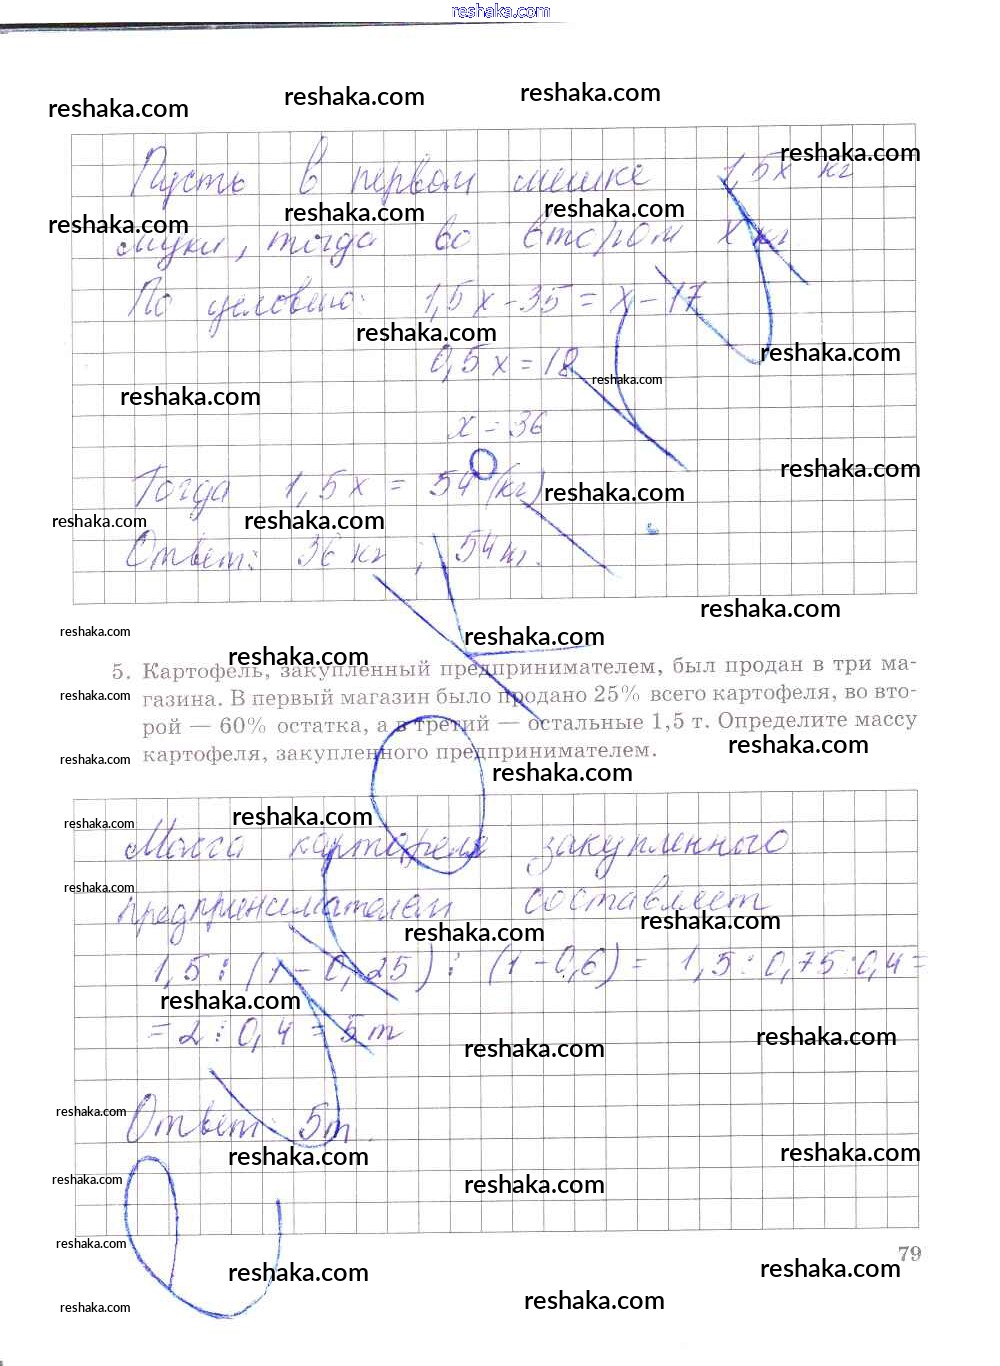 reshaka.com
reshaka.com reshaka.com reshaka.com
reshaka.com
Пусть в первом мешке 1,5x кг
reshaka.com reshaka.com reshaka.com
муки, тогда во втором x кг
По условию: 1,5x - 35 = x - 17
reshaka.com reshaka.com
0,5x = 18
reshaka.com reshaka.com
x = 36
reshaka.com
Тогда 1,5x = 54 (кг)
reshaka.com reshaka.com reshaka.com
Ответ: 36 кг ; 54 кг.
reshaka.com
reshaka.com reshaka.com reshaka.com
5. Картофель, закупленный предпринимателем, был продан в три ма-
reshaka.com
газина. В первый магазин было продано 25% всего картофеля, во вто-
рой — 60% остатка, а в третий — остальные 1,5 т. Определите массу
reshaka.com reshaka.com
картофеля, закупленного предпринимателем.
reshaka.com
reshaka.com reshaka.com
Масса картофеля закупленного
reshaka.com
предпринимателем составляет
reshaka.com reshaka.com
1,5 : (1 - 0,25) : (1 - 0,6) = 1,5 : 0,75 : 0,4 =
reshaka.com
= 2 : 0,4 = 5 т
reshaka.com reshaka.com
reshaka.com
Ответ: 5т.
reshaka.com reshaka.com
reshaka.com reshaka.com
reshaka.com
79
reshaka.com reshaka.com
reshaka.com reshaka.com